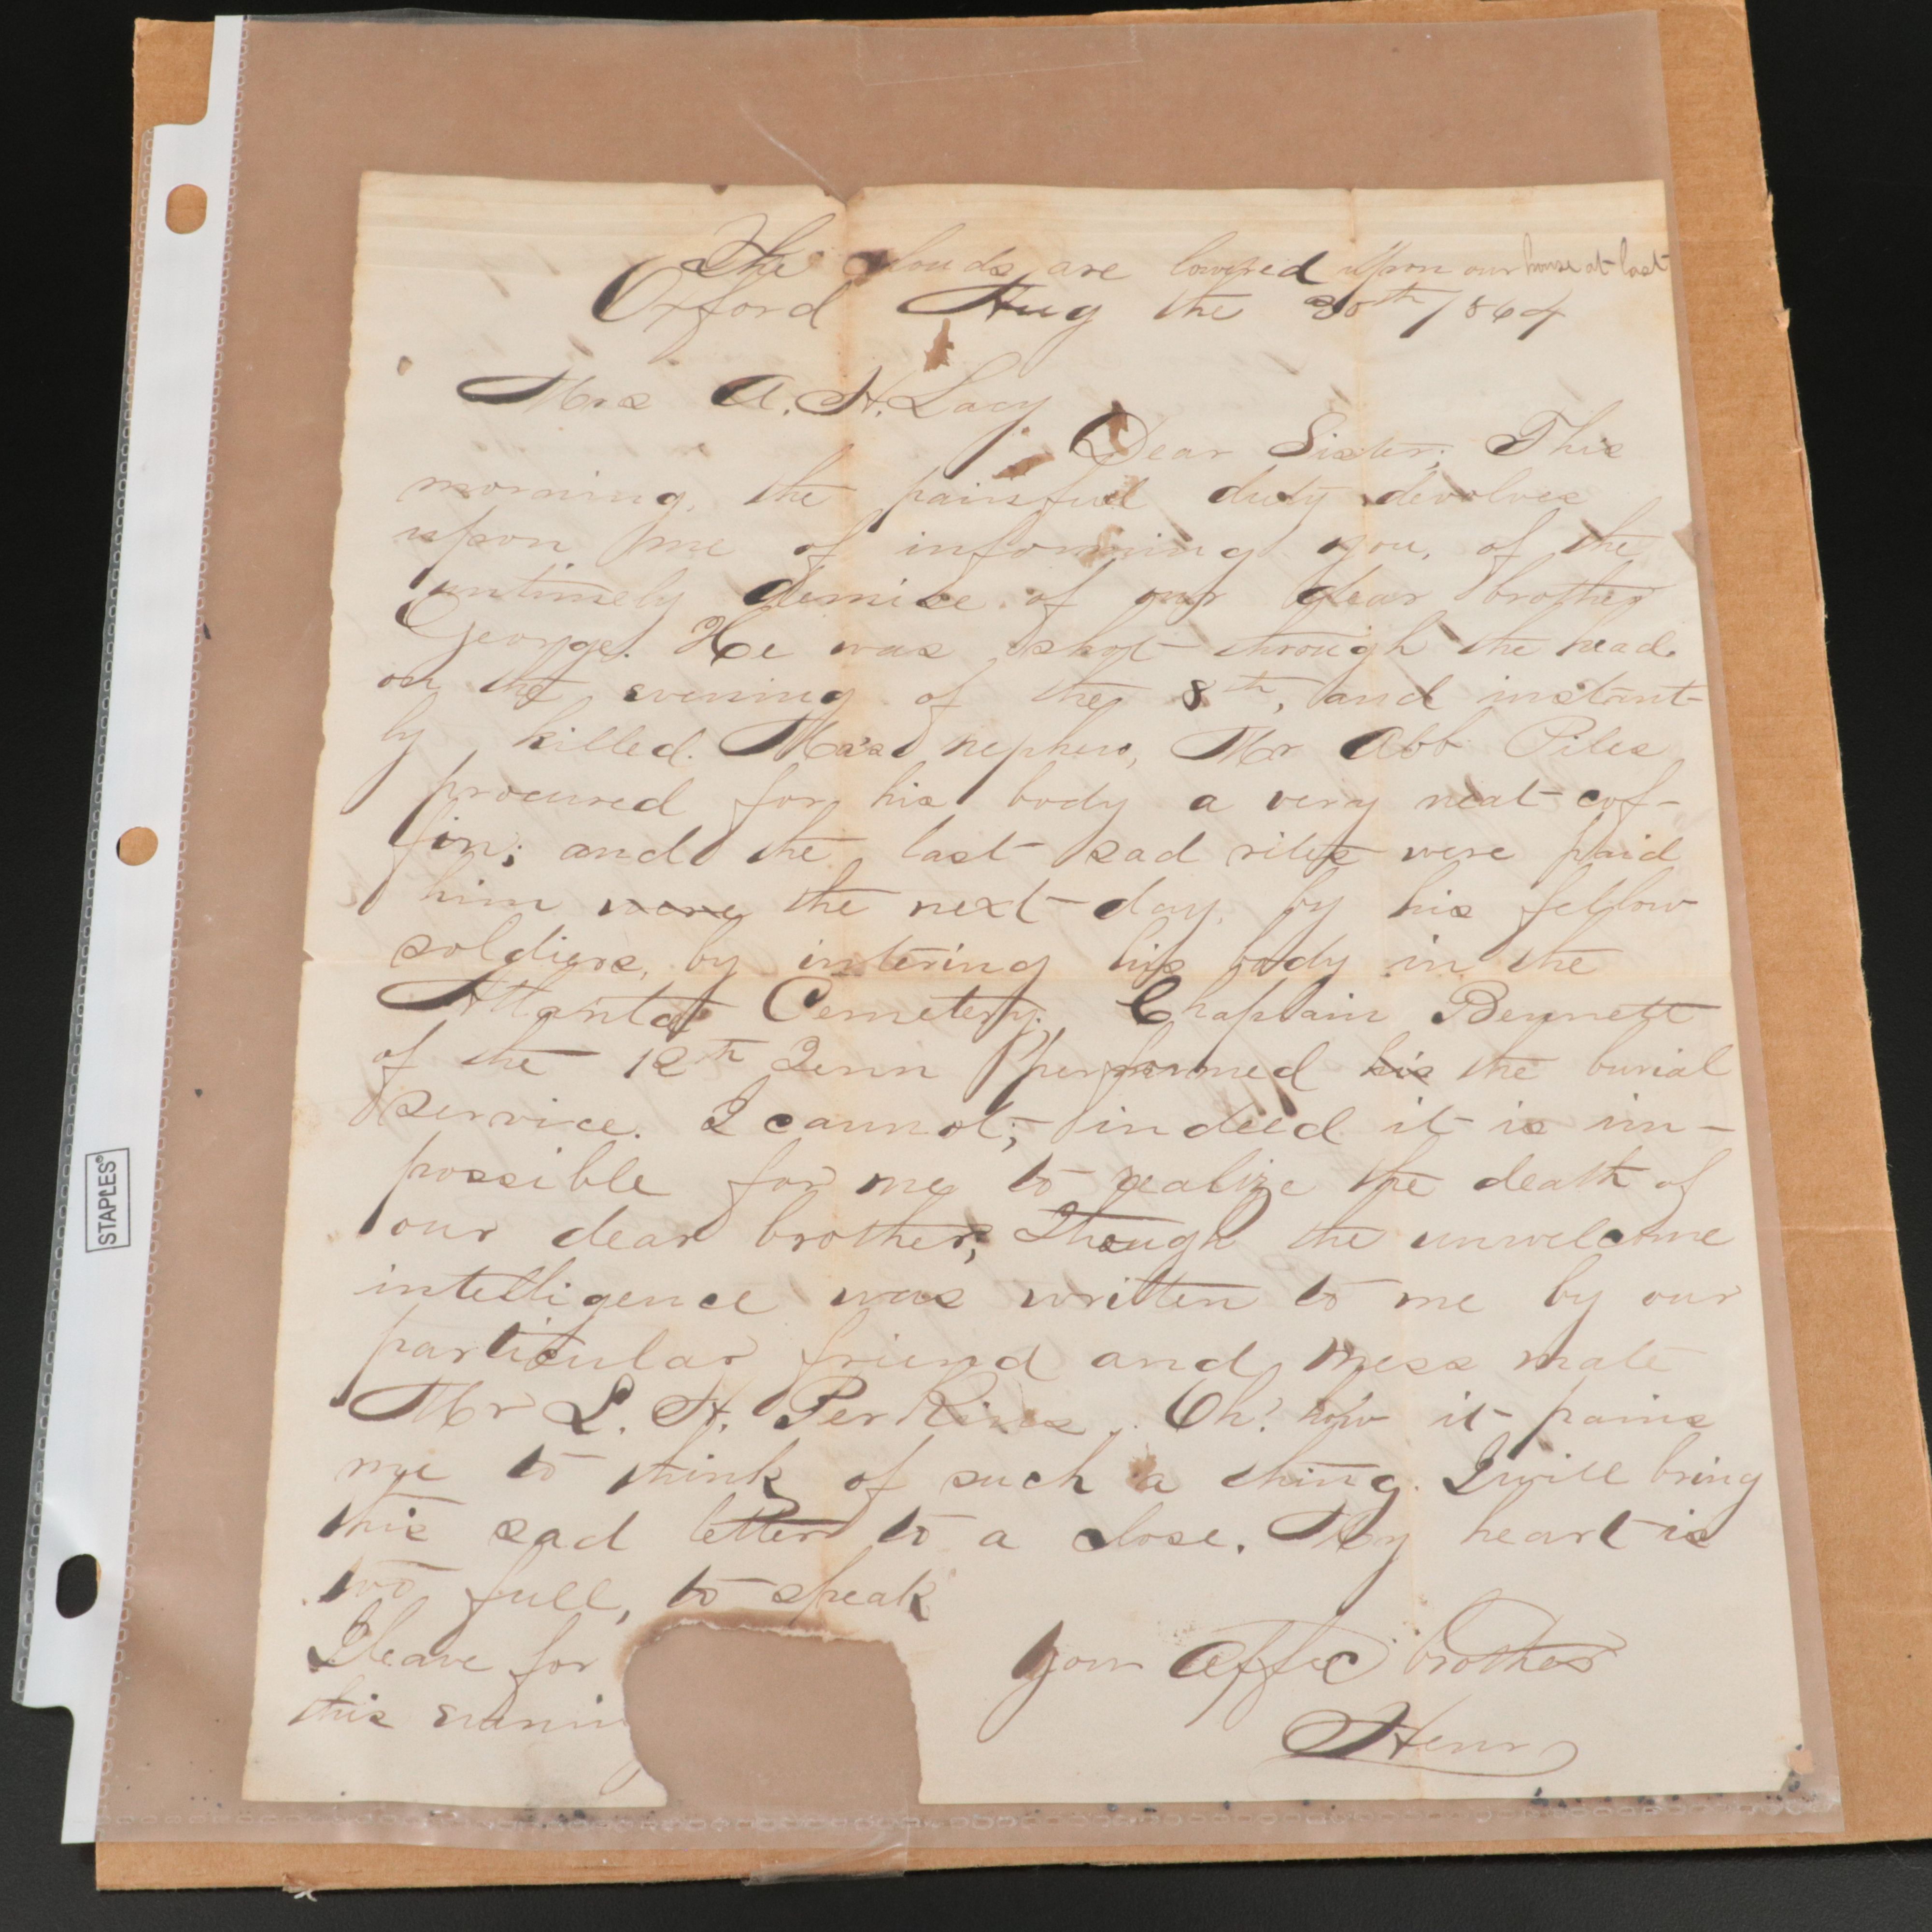 The clouds are lowered upon our house at last
Oxford Aug the 30th 1864
Mrs A. H. Lacy
Dear Sister; This
morning, the painful duty devolves
upon me of informing you, of the
untimely demise of our dear brother
George. He was shot through the head
on the evening of the 8th, and instant-
ly killed. nephew, Mr Abb Piles
procured for his body a very neat cof-
fin; and the last sad rites were paid
him were the next day, by his fellow
soldiers, by intering his body in the
Atlanta Cemetery. Chaplain Bennett
of the 12th Tenn performed his the burial
service. I cannot; indeed it is im-
possible for me to realize the death of
our dear brother, Though the unwelcome
intelligence was written to me by our
particular friend and mess mate
Mr L. H. Perkins. Oh! how it pains
me to think of such a thing. I will bring
this sad letter to a close. My heart is
too full, to speak
I leave for
this evenin
Your Affec brother
Henry
STAPLES®